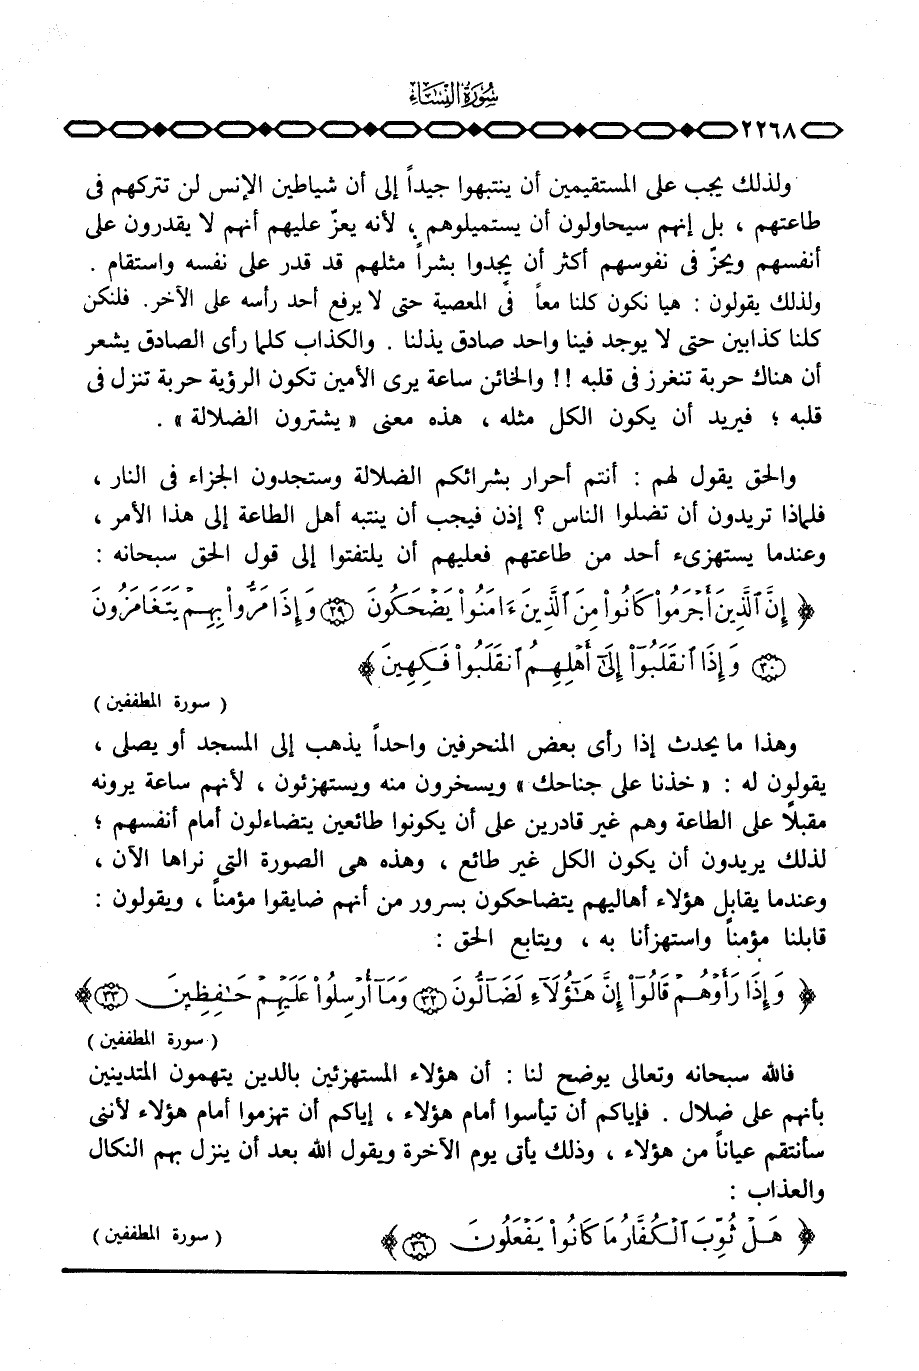 سورة النساء
٢٢٦٨
ولذلك يجب على المستقيمين أن ينتبهوا جيداً إلى أن شياطين الإنس لن تتركهم فى
طاعتهم ، بل إنهم سيحاولون أن يستميلوهم ، لأنه يعزّ عليهم أنهم لا يقدرون على
أنفسهم ويحزّ فى نفوسهم أكثر أن يجدوا بشراً مثلهم قد قدر على نفسه واستقام .
ولذلك يقولون : هيا نكون كلنا معاً فى المعصية حتى لا يرفع أحد رأسه على الآخر. فلنكن
كلنا كذابين حتى لا يوجد فينا واحد صادق يذلنا . والكذاب كلما رأى الصادق يشعر
أن هناك حربة تنغرز فى قلبه !! والخائن ساعة يرى الأمين تكون الرؤية حربة تنزل فى
قلبه ؛ فيريد أن يكون الكل مثله ، هذه معنى « يشترون الضلالة » .
والحق يقول لهم : أنتم أحرار بشرائكم الضلالة وستجدون الجزاء فى النار ،
فلماذا تريدون أن تضلوا الناس ؟ إذن فيجب أن ينتبه أهل الطاعة إلى هذا الأمر ،
وعندما يستهزىء أحد من طاعتهم فعليهم أن يلتفتوا إلى قول الحق سبحانه :
﴿ إِنَّ ٱلَّذِينَ أَجْرَمُواْ كَانُواْ مِنَ ٱلَّذِينَ ءَامَنُواْ يَضْحَكُونَ ﴿٢٩﴾ وَإِذَا مَرُّواْ بِهِمْ يَتَغَامَزُونَ
﴿٣٠﴾ وَإِذَا ٱنقَلَبُوٓاْ إِلَىٰٓ أَهْلِهِمُ ٱنقَلَبُواْ فَكِهِينَ ﴾
( سورة المطففين )
وهذا ما يحدث إذا رأى بعض المنحرفين واحداً يذهب إلى المسجد أو يصلى ،
يقولون له : « خذنا على جناحك » ويسخرون منه ويستهزئون ، لأنهم ساعة يرونه
مقبلاً على الطاعة وهم غير قادرين على أن يكونوا طائعين يتضاءلون أمام أنفسهم ؛
لذلك يريدون أن يكون الكل غير طائع ، وهذه هى الصورة التى نراها الآن ،
وعندما يقابل هؤلاء أهاليهم يتضاحكون بسرور من أنهم ضايقوا مؤمناً ، ويقولون :
قابلنا مؤمناً واستهزأنا به ، ويتابع الحق :
﴿ وَإِذَا رَأَوْهُمْ قَالُوٓاْ إِنَّ هَـٰٓؤُلَآءِ لَضَآلُّونَ ﴿٣٢﴾ وَمَآ أُرْسِلُواْ عَلَيْهِمْ حَـٰفِظِينَ ﴿٣٣﴾ ﴾
( سورة المطففين )
فالله سبحانه وتعالى يوضح لنا : أن هؤلاء المستهزئين بالدين يتهمون المتدينين
بأنهم على ضلال . فإياكم أن تيأسوا أمام هؤلاء ، إياكم أن تهزموا أمام هؤلاء لأننى
سأنتقم عياناً من هؤلاء ، وذلك يأتى يوم الآخرة ويقول الله بعد أن ينزل بهم النكال
والعذاب :
﴿ هَلْ ثُوِّبَ ٱلْكُفَّارُ مَا كَانُواْ يَفْعَلُونَ ﴿٣٦﴾ ﴾ ( سورة المطففين )